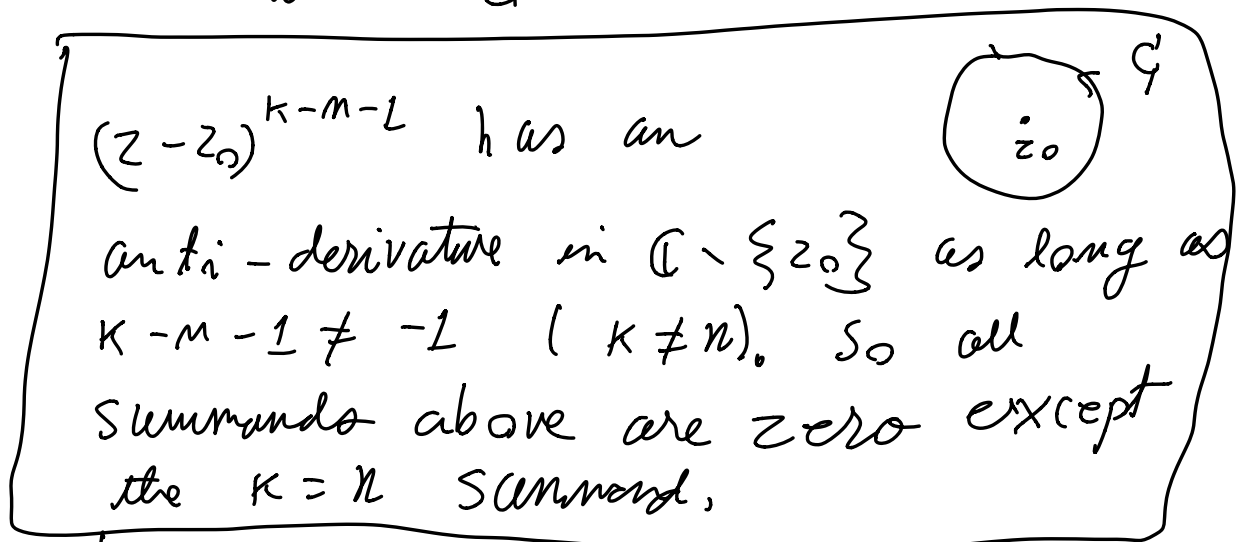 (z - z₀)^{k-n-1} has an
C
z₀
anti-derivative in ℂ \ {z₀} as long as
k - n - 1 ≠ -1 ( k ≠ n). So all
summands above are zero except
the k = n summand.